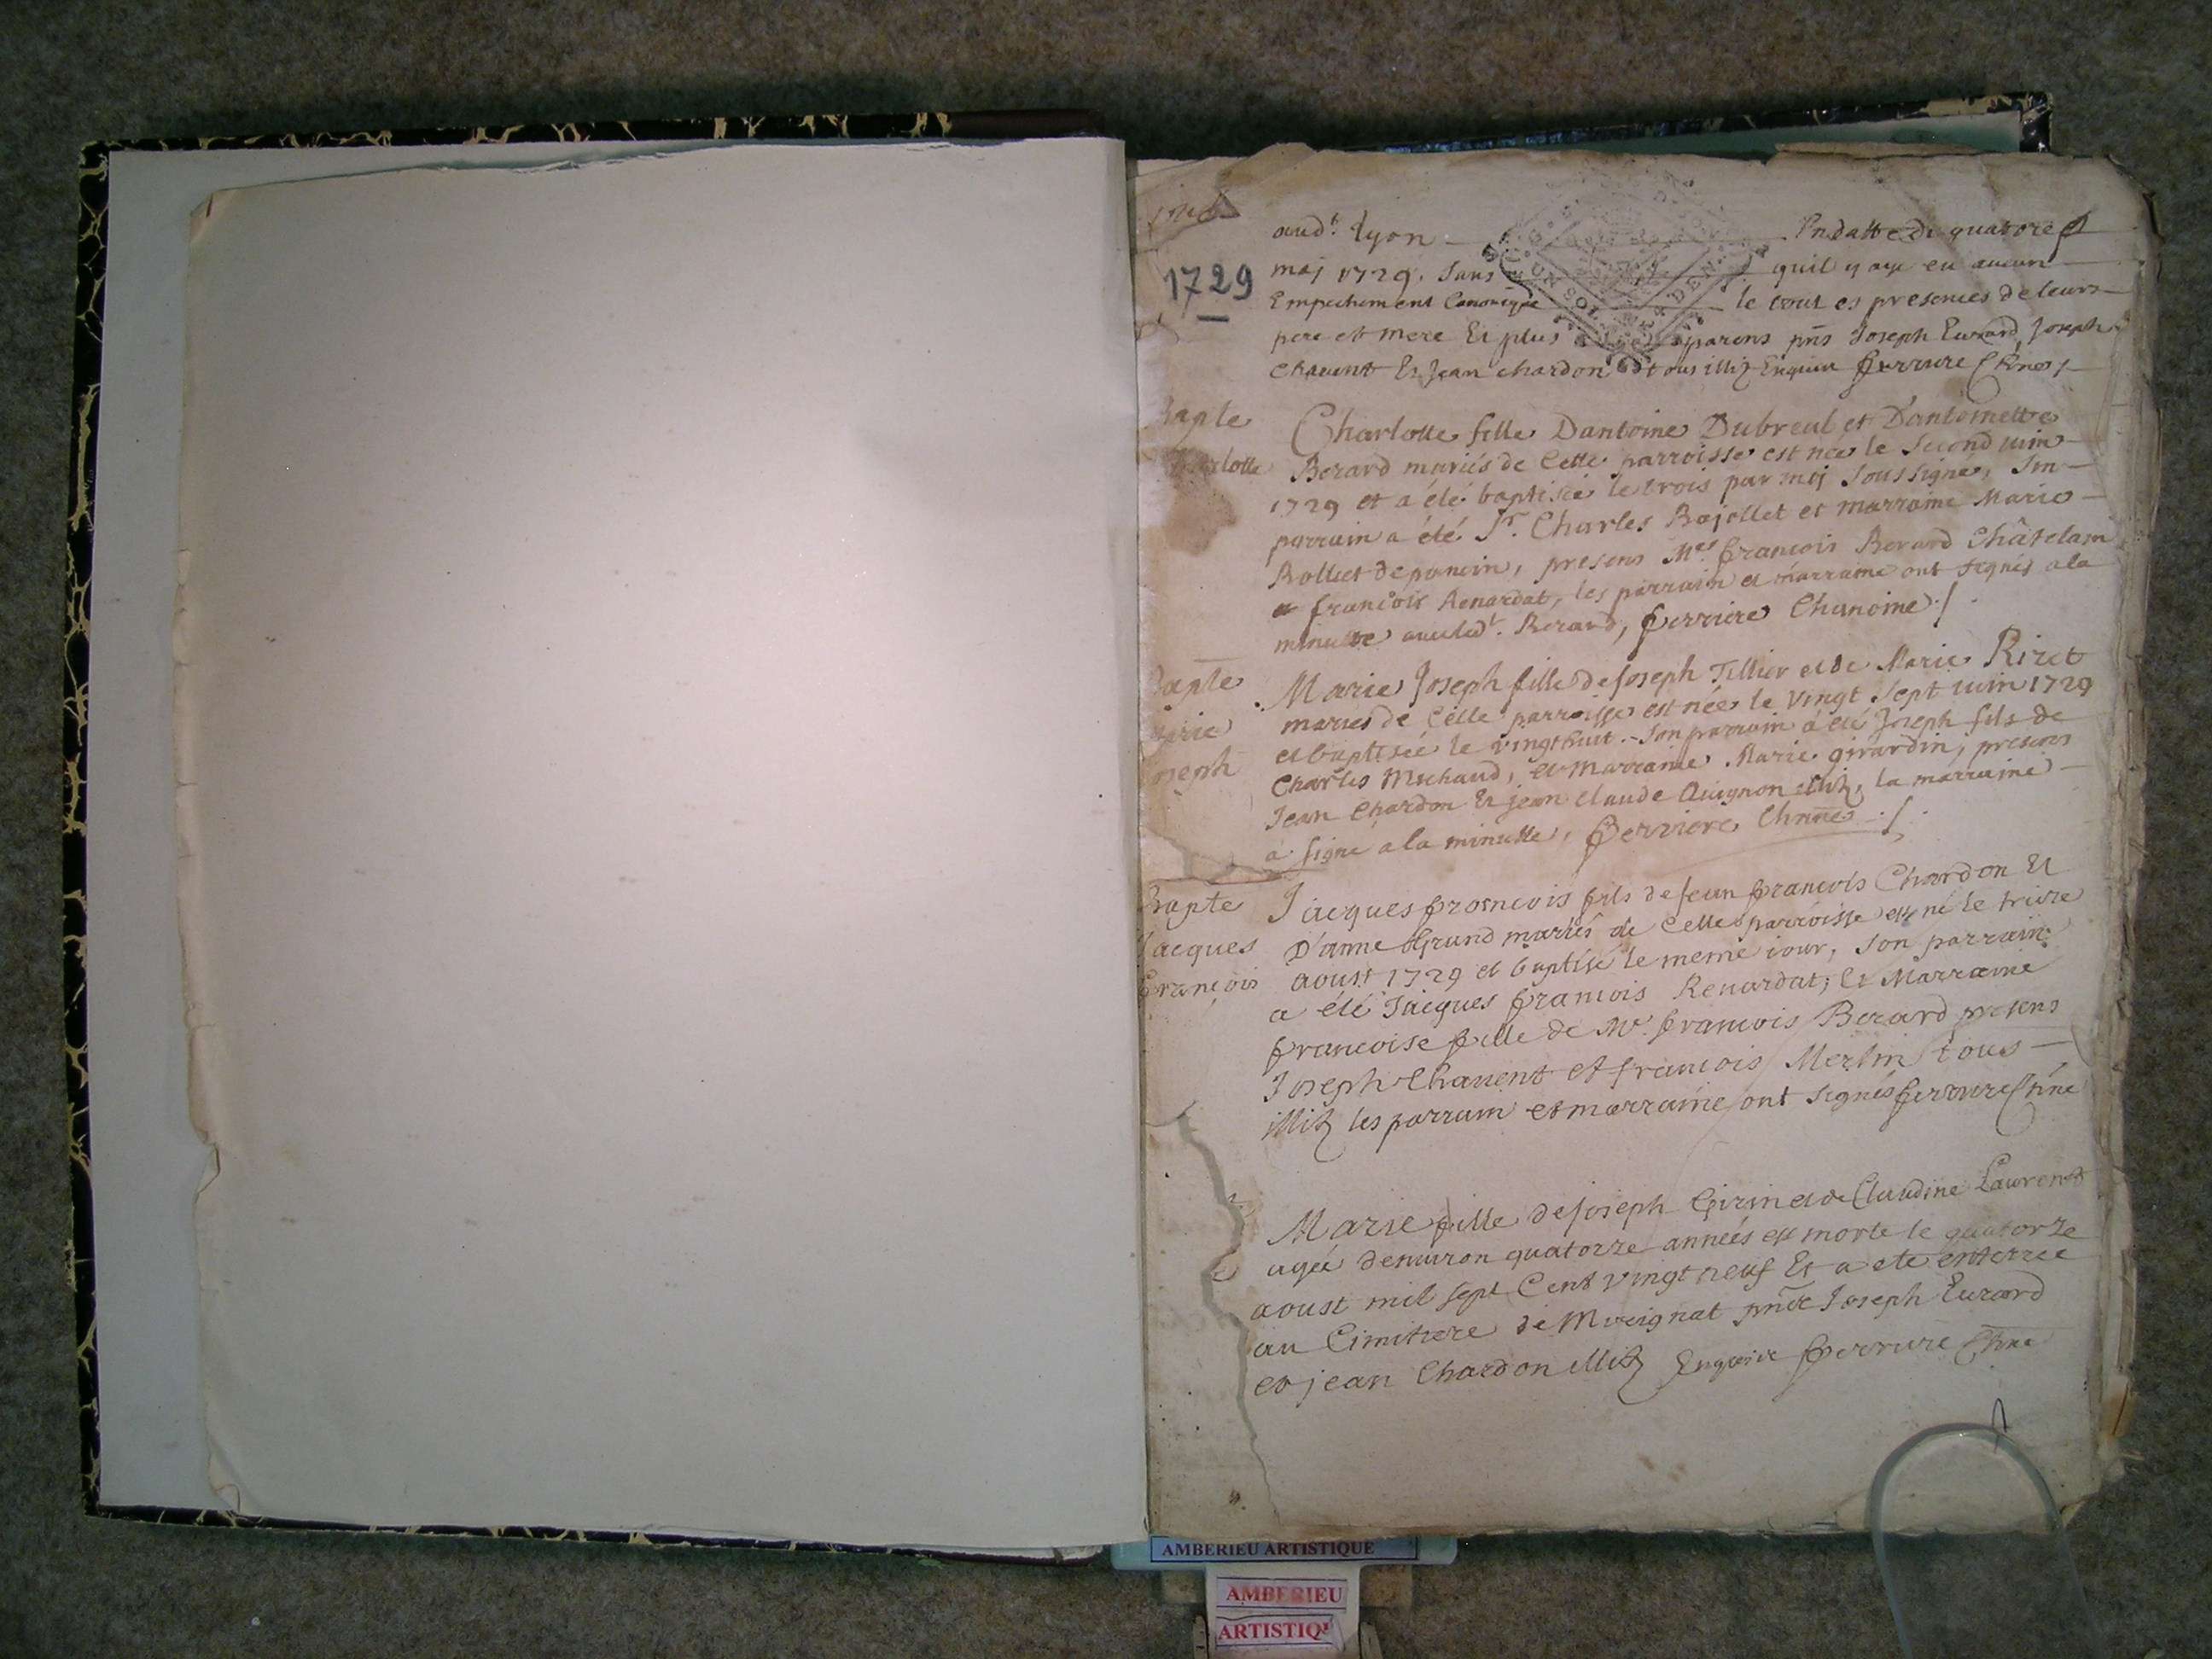 1729
audt. Lyon En datte du quatorze
maj 1729. sans quil y aye eu aucun
Empechement Canonique le tout es presences de leurs
pere et mere Et plus parens pns Joseph Eurard, Joseph
Chauent Et Jean chardon tous illit Enquis ferriere Chne
Bapte
Charlotte
Charlotte fille Dantoine Dubreul et Dantoinette
Berard mariés de Cette parroisse est née le Second iuin
1729 et a été baptisée le trois par moj Soussigné, Son
parrain a été Sr. Charles Bajollet et marraine Marie
Rollet de poncin, presens Mes francois Berard Châtelain
et francois Renardat, les parrain et marraine ont signés a la
minutte auecledt. Berard, ferriere Chanoine ./.
Bapte
Marie
Joseph
Marie Joseph fille de Joseph Tillier et de Marie Rizet
maries de Cette parroisse est née le Vingt Sept iuin 1729
et baptisée le vingt huit. Son parrain a été Joseph fils de
Charles Michaud, et Marraine Marie girardin, presens
Jean Chardon Et jean claude Auignon illit, la marraine
a signé a la minutte, ferriere Chnne ./.
Bapte
Jacques
François
Jacques francois fils de Jean francois Chardon Et
D'anne Grand mariés de Cette parroisse est né le treize
aoust 1729 et baptisé le meme iour, Son parrain
a été Jacques francois Renardat; Et Marraine
francoise fille de Mr. francois Berard presens
Joseph Chauent et francois Merlin tous
illit les parrain et marraine ont signés ferriere Chne
Marie fille de Joseph Girin et de Claudine Laurent
agée denuiron quatorze années est morte le quatorze
aoust mil sept Cent vingt neuf Et a ete enterrée
au Cimitiere de Mereignat pnce Joseph Eurard
et jean Chardon illit Enquis ferriere Chne
AMBERIEU ARTISTIQUE
AMBERIEU
ARTISTIQU